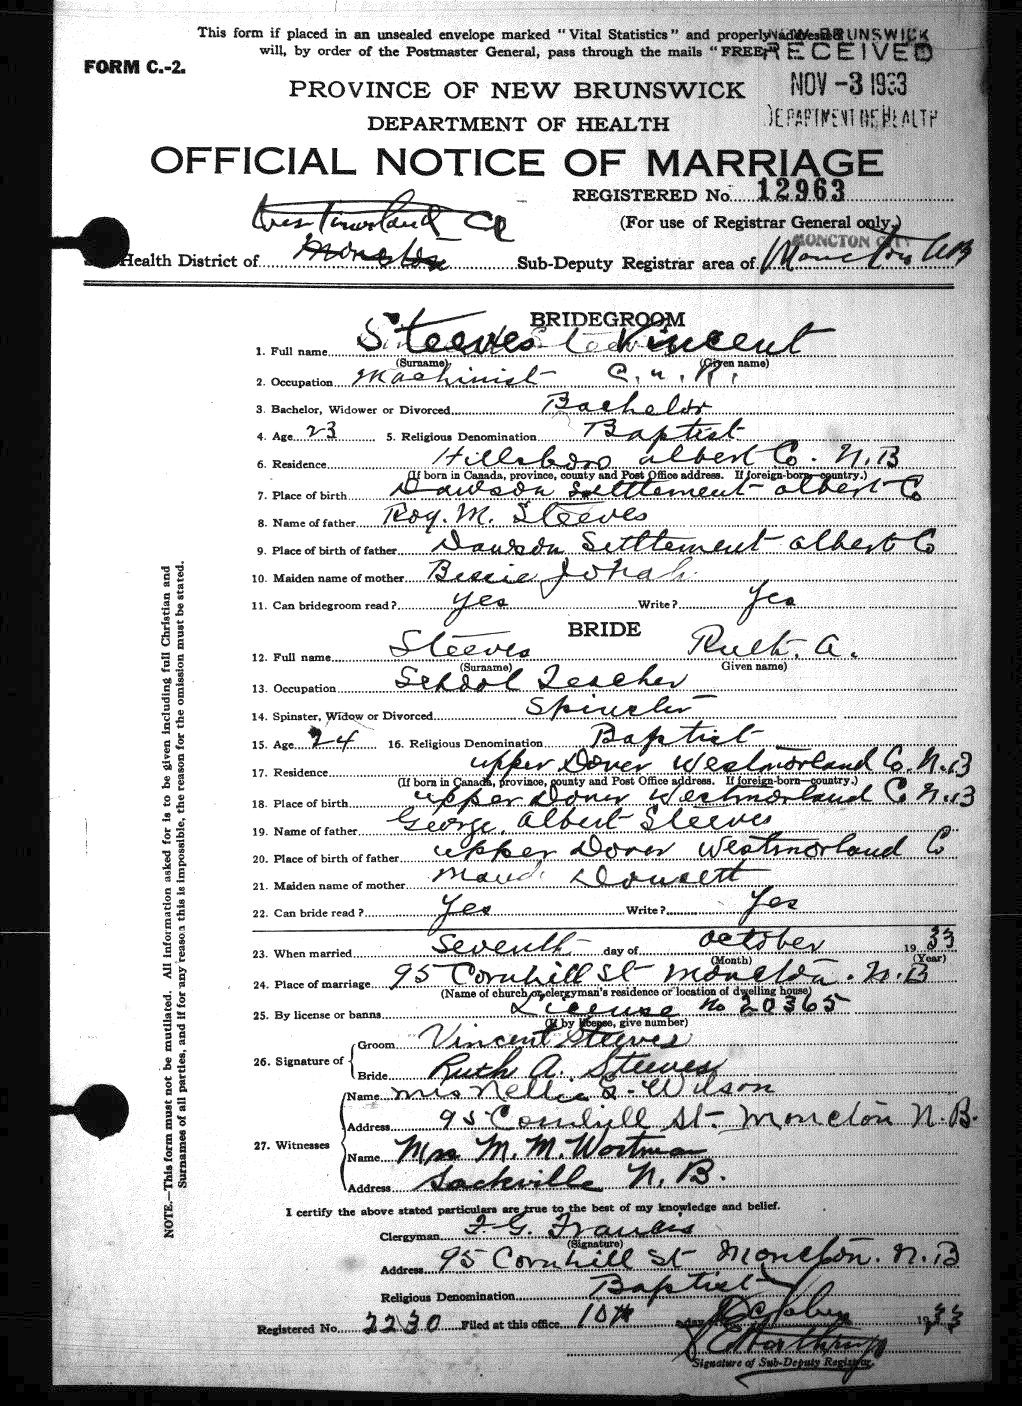 This form if placed in an unsealed envelope marked "Vital Statistics" and properly addressed
will, by order of the Postmaster General, pass through the mails "FREE"
NEW BRUNSWICK
RECEIVED
NOV -3 1933
DEPARTMENT OF HEALTH
FORM C.-2.
PROVINCE OF NEW BRUNSWICK
DEPARTMENT OF HEALTH
OFFICIAL NOTICE OF MARRIAGE
REGISTERED No. 12963
(For use of Registrar General only.)
Westmorland Co
MONCTON CITY
Health District of Moncton Sub-Deputy Registrar area of Moncton N.B
BRIDEGROOM
1. Full name Steeves Vincent
(Surname) (Given name)
2. Occupation Machinist C.N.R.
3. Bachelor, Widower or Divorced Bachelor
4. Age 23 5. Religious Denomination Baptist
6. Residence Hillsboro Albert Co. N.B
(If born in Canada, province, county and Post Office address. If foreign-born—country.)
7. Place of birth Dawson Settlement Albert Co
8. Name of father Roy. M. Steeves
9. Place of birth of father Dawson Settlement Albert Co
10. Maiden name of mother Bessie Jonah
11. Can bridegroom read? Yes Write? Yes
BRIDE
12. Full name Steeves Ruth. A.
(Surname) Given name)
13. Occupation School Teacher
14. Spinster, Widow or Divorced Spinster
15. Age 24 16. Religious Denomination Baptist
17. Residence Upper Dover Westmorland Co. N.B
(If born in Canada, province, county and Post Office address. If foreign-born—country.)
18. Place of birth Upper Dover Westmorland Co N.B
19. Name of father George Albert Steeves
20. Place of birth of father Upper Dover Westmorland Co
21. Maiden name of mother Maud Dousett
22. Can bride read? Yes Write? Yes
23. When married Seventh day of October 1933
(Month) (Year)
24. Place of marriage 95 Cornhill St Moncton. N.B
(Name of church, or clergyman's residence or location of dwelling house)
25. By license or banns License No 20365
(If by license, give number)
26. Signature of Groom Vincent Steeves
Bride Ruth A. Steeves
27. Witnesses
Name Mrs Nellie S. Wilson
Address 95 Cornhill St- Moncton N.B.
Name Mrs M. M. Wortman
Address Sackville N.B.
I certify the above stated particulars are true to the best of my knowledge and belief.
Clergyman F. G. Francis
(Signature)
Address 95 Cornhill St Moncton. N.B
Religious Denomination Baptist
Registered No. 2230 Filed at this office 10th day October 1933
Signature of Sub-Deputy Registrar.
NOTE.—This form must not be mutilated. All information asked for is to be given including full Christian and
Surnames of all parties, and if for any reason this is impossible, the reason for the omission must be stated.